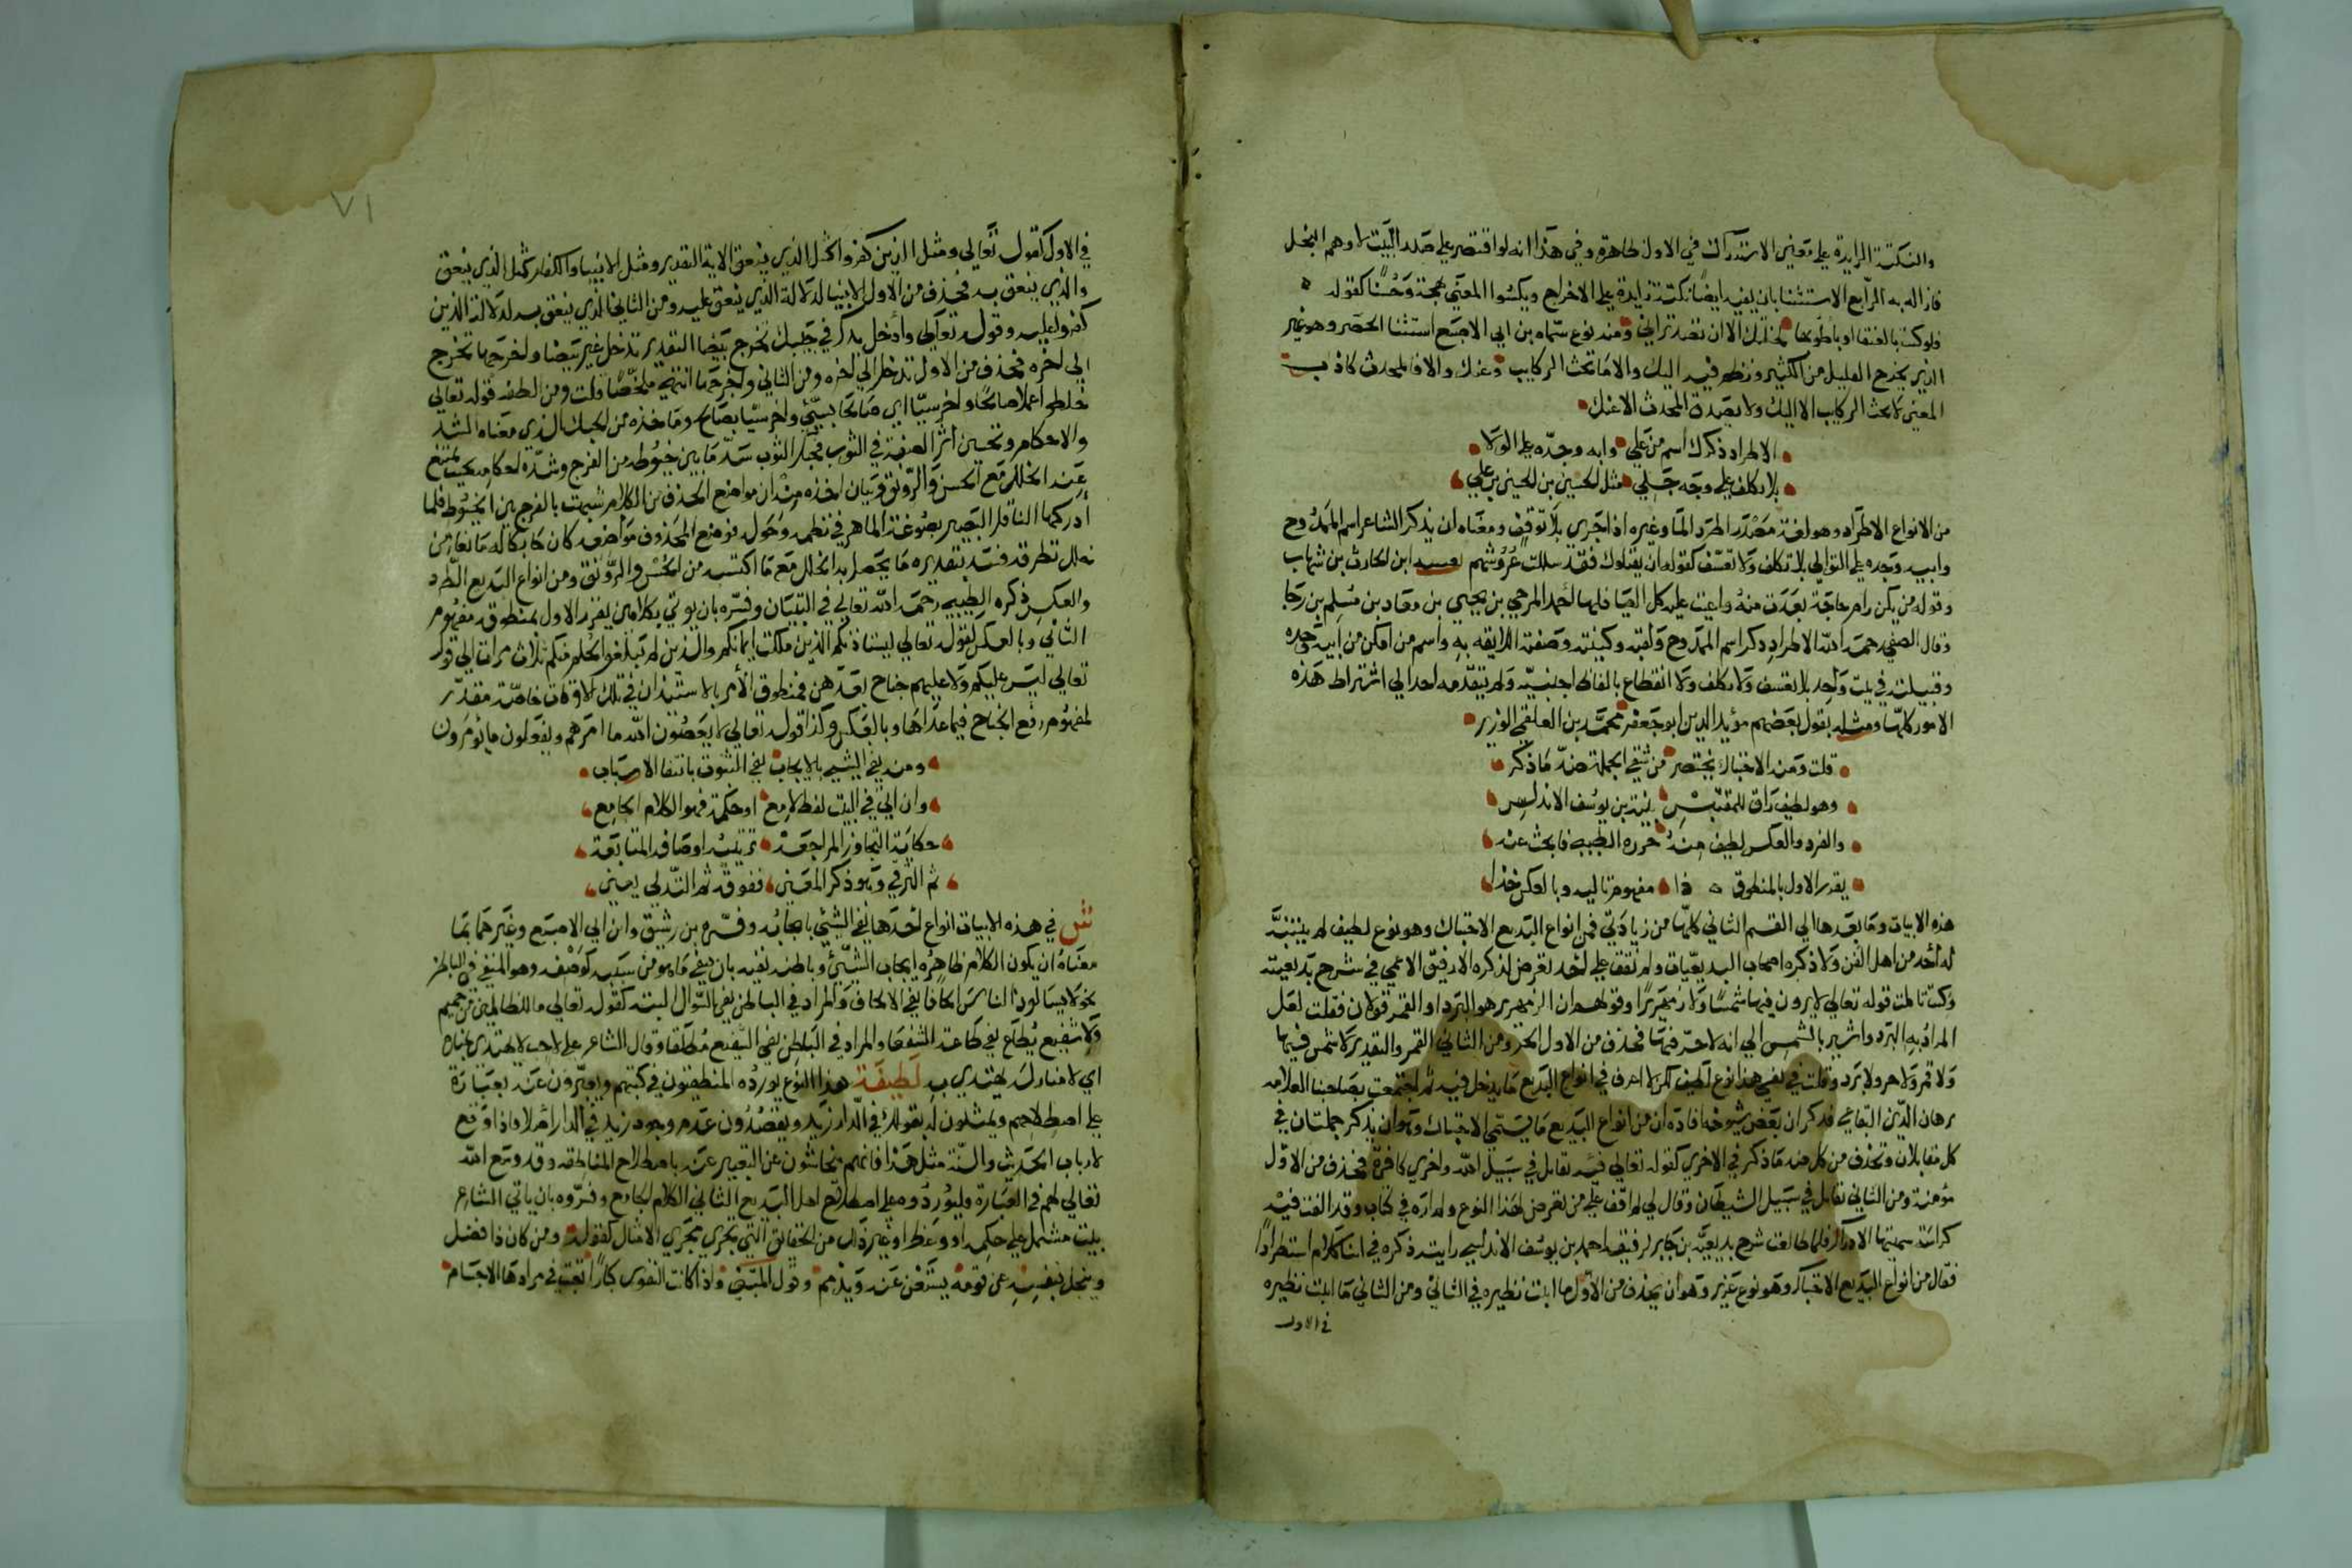 والنكتة الزايدة على معنى الاستدراك في الاول ظاهرة وفي هذا انه لو اقتصر على صدر البيت لاوهم البخل
فازاله به الرابع الاستثنا بان يفيد ايضا نكتة زايدة على الاخراج ويكسوا المعنى بهجة وحسنا كقوله
فلو كنت بالعنقا او باطومها لخلتك الا ان تصد تراني ومنه نوع سماه بن ابي الاصبع استثنا الحصر وهو غير
الذي يخرج القليل من الكثير ونظم فيه اليك والا ما تحث الركايب وعنك والا فالمحدث كاذب
المعنى لا تحث الركاب الا اليك ولا يصدق المحدث الا عنك
الاطراد ذكرك اسم من علي وابه وجده على الولا
بلا تكلف على وجه جلي مثل الحسين بن الحسين بن علي
من الانواع الاطراد وهو لغة مصدر اطرد الما وغيره اذا جرى بلا توقف ومعناه ان يذكر الشاعر اسم الممدوح
وابيه وجده على التوالي بلا تكلف ولا تعسف كقوله ان يقتلوك فقد ثللت عروشهم بعتيبة ابن الحارث بن شهاب
وقوله من يكن رام حاجة بعدت منه واعيت عليه كل العيا فلها احمد المرجى بن يحيى بن معاد بن مسلم بن رجا
وقال الصفي رحمه الله الاطراد ذكر اسم الممدوح ولقبه وكنيته وصفته اللايقه به واسم من امكن من ابيه وجده
وقبيلته في بيت واحد بلا تعسف ولا تكلف ولا انقطاع بالفاظ اجنبية ولم يتقدمه احد الى اشتراط هذه
الامور كلها ومثله بقول بعضهم مؤيد الدين ابو جعفر محمد بن العلقمي الوزير
قلت ومنه الاحتباك يختصر من شقي الجملة ضد ما ذكر
وهو لطيف راق للمقتبس بينه بن يوسف الاندلسي
والطرد والعكس لطيف منه حرره الطيبي فابحث عنه
يقرر الاول بالمنطوق ذا مفهوم تاليه وبالعكس خذا
هذه الابيات وما بعدها الى القسم الثاني كلها من زيادتي فمن انواع البديع الاحتباك وهو نوع لطيف لم يتنبه
له احد من اهل الفن ولا ذكره اصحاب البديعيات ولم نقف على احد تعرض لذكره الا رفيق الاعمى في شرح بديعيته
وكنت تاملت قوله تعالى لا يرون فيها شمسا ولا زمهريرا وقولهم ان الزمهرير هو البرد او القمر قولان فقلت لعل
المراد به البرد واشير بالشمس الى انه لا حر فيها فحذف من الاول الحر ومن الثاني القمر والتقدير لا شمس فيها
ولا قمر ولا حر ولا برد وقلت في نفسي هذا نوع لطيف لكن لا اعرف في انواع البديع ما يدخل فيه ثم اجتمعت بصاحبنا العلامه
برهان الدين البقاعي فذكر ان بعض شيوخه افاده ان من انواع البديع ما يسمى الاحتباك وهو ان يذكر جملتان في
كل متقابلان ويحذف من كل ضد ما ذكر في الاخرى كقوله تعالى فئة تقاتل في سبيل الله واخرى كافرة فحذف من الاول
مؤمنة ومن الثاني تقاتل في سبيل الشيطان وقال لي لم اقف على من تعرض لهذا النوع ولم اره في كتاب وقد الفت فيه
كراسة سميتها الادراك فلما طالعت شرح بديعية بن جابر لرفيقه احمد بن يوسف الاندلسي رايته ذكره في اثنا كلام استطرادا
فقال من انواع البديع الاحتباك وهو نوع عزيز وهو ان يحذف من الاول ما اثبت نظيره في الثاني ومن الثاني ما اثبت نظيره
في الاول
٧١
في الاول كقوله تعالى ومثل الذين كفروا كمثل الذي ينعق الاية التقدير ومثل الانبيا والكفار كمثل الذي ينعق
والذي ينعق به فحذف من الاول الانبيا لدلالة الذي ينعق عليه ومن الثاني الذي ينعق به لدلالة الذين
كفروا عليه وقوله تعالى وادخل يدك في جيبك تخرج بيضا التقدير تدخل غير بيضا واخرجها تخرج
الى اخره فحذف من الاول تدخل الى اخره ومن الثاني واخرجها انتهى ملخصا قلت ومن الطفه قوله تعالى
خلطوا عملا صالحا واخر سيئا اي صالحا بسيئ واخر سيئا بصالح وماخذه من الحبك الذي معناه الشد
والاحكام وتحسين اثر الصنعة في الثوب فحبك الثوب سد ما بين خيوطه من الفرج وشده احكامه بحيث يمنع
عنه الخلل مع الحسن والرونق وبيان اخذه منه ان مواضع الحذف من الكلام شبهت بالفرج بين الخيوط فلما
ادركها الناقد البصير بصوغته الماهر في نظمه وحوله فوضع المحذوف مواضعه كان حابكا له مانعا من
خلل تطرقه فسد بتقديره ما يحصل به الخلل مع ما اكتسبه من الحسن والرونق ومن انواع البديع الطرد
والعكس ذكره الطيبي رحمه الله تعالى في التبيان وفسره بان يوتى بكلامين يقرر الاول بمنطوقه مفهوم
الثاني وبالعكس كقوله تعالى ليستاذنكم الذين ملكت ايمانكم والذين لم يبلغوا الحلم منكم ثلاث مرات الى قوله
تعالى ليس عليكم ولا عليهم جناح بعدهن فمنطوق الامر بالاستئذان في تلك الاوقات خاصة مقدر
لمفهوم رفع الجناح فيما عداها وبالعكس وكذا قوله تعالى لا يعصون الله ما امرهم ويفعلون ما يؤمرون
ومنه نفي الشيء بالايجاب نفي الثبوت بانتفا الاسباب
وان اتى في البيت لفظ لامع او حكمة فهو الكلام الجامع
حكاية التحاور المراجعة ترتيبه اوصافه المتابعة
ثم الترقي وهو ذكر المعنى ففوقه ثم التدلي يعنى
ش في هذه الابيات انواع احدها نفي الشيئ بايجابه وفسره بن رشيق وابن ابي الاصبع وغيرهما بما
معناه ان يكون الكلام ظاهره ايجاب الشيئ وباطنه نفيه بان ينفي ما هو من سببه كوصفه وهو المنفي في الباطن
نحو لا يسالون الناس الحافا نفي الالحاف والمراد في الباطن نفي السؤال البتة كقوله تعالى ما للظالمين من حميم
ولا شفيع يطاع نفي طاعة الشفعا والمراد في الباطن نفي الشفيع مطلقا وقال الشاعر على لاحب لا يهتدى بمناره
اي لا منار له يهتدى به لطيفة هذا النوع يورده المنطقيون في كتبهم ويعبرون عنه بعبارة
على اصطلاحهم ويمثلون له بقولك في الدار زيد ويقصدون عدم وجود زيد في الدار ام لا واذا وقع
لارباب الحديث والسنة مثل هذا فانهم يتحاشون عن التعبير عنه باصطلاح المناطقه وقد وسع الله
تعالى لهم في العبارة فليوردوه على اصطلاح اهل البديع الثاني الكلام الجامع وفسروه بان ياتي الشاعر
ببيت مشتمل على حكمة او وعظ او غير ذلك من الحقائق التي تجري مجرى الامثال كقوله ومن كان ذا فضل
ويبخل بفضله على قومه يستغن عنه ويذمم وقول المتنبي واذا كانت النفوس كبارا تعبت في مرادها الاجسام